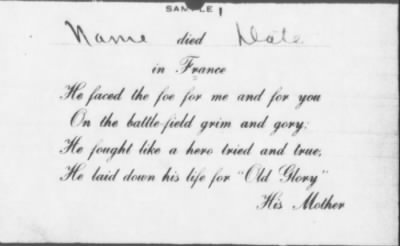 SAMPLE
Name died Date
in France
He faced the foe for me and for you
On the battle-field grim and gory;
He fought like a hero tried and true,
He laid down his life for "Old Glory"
His Mother